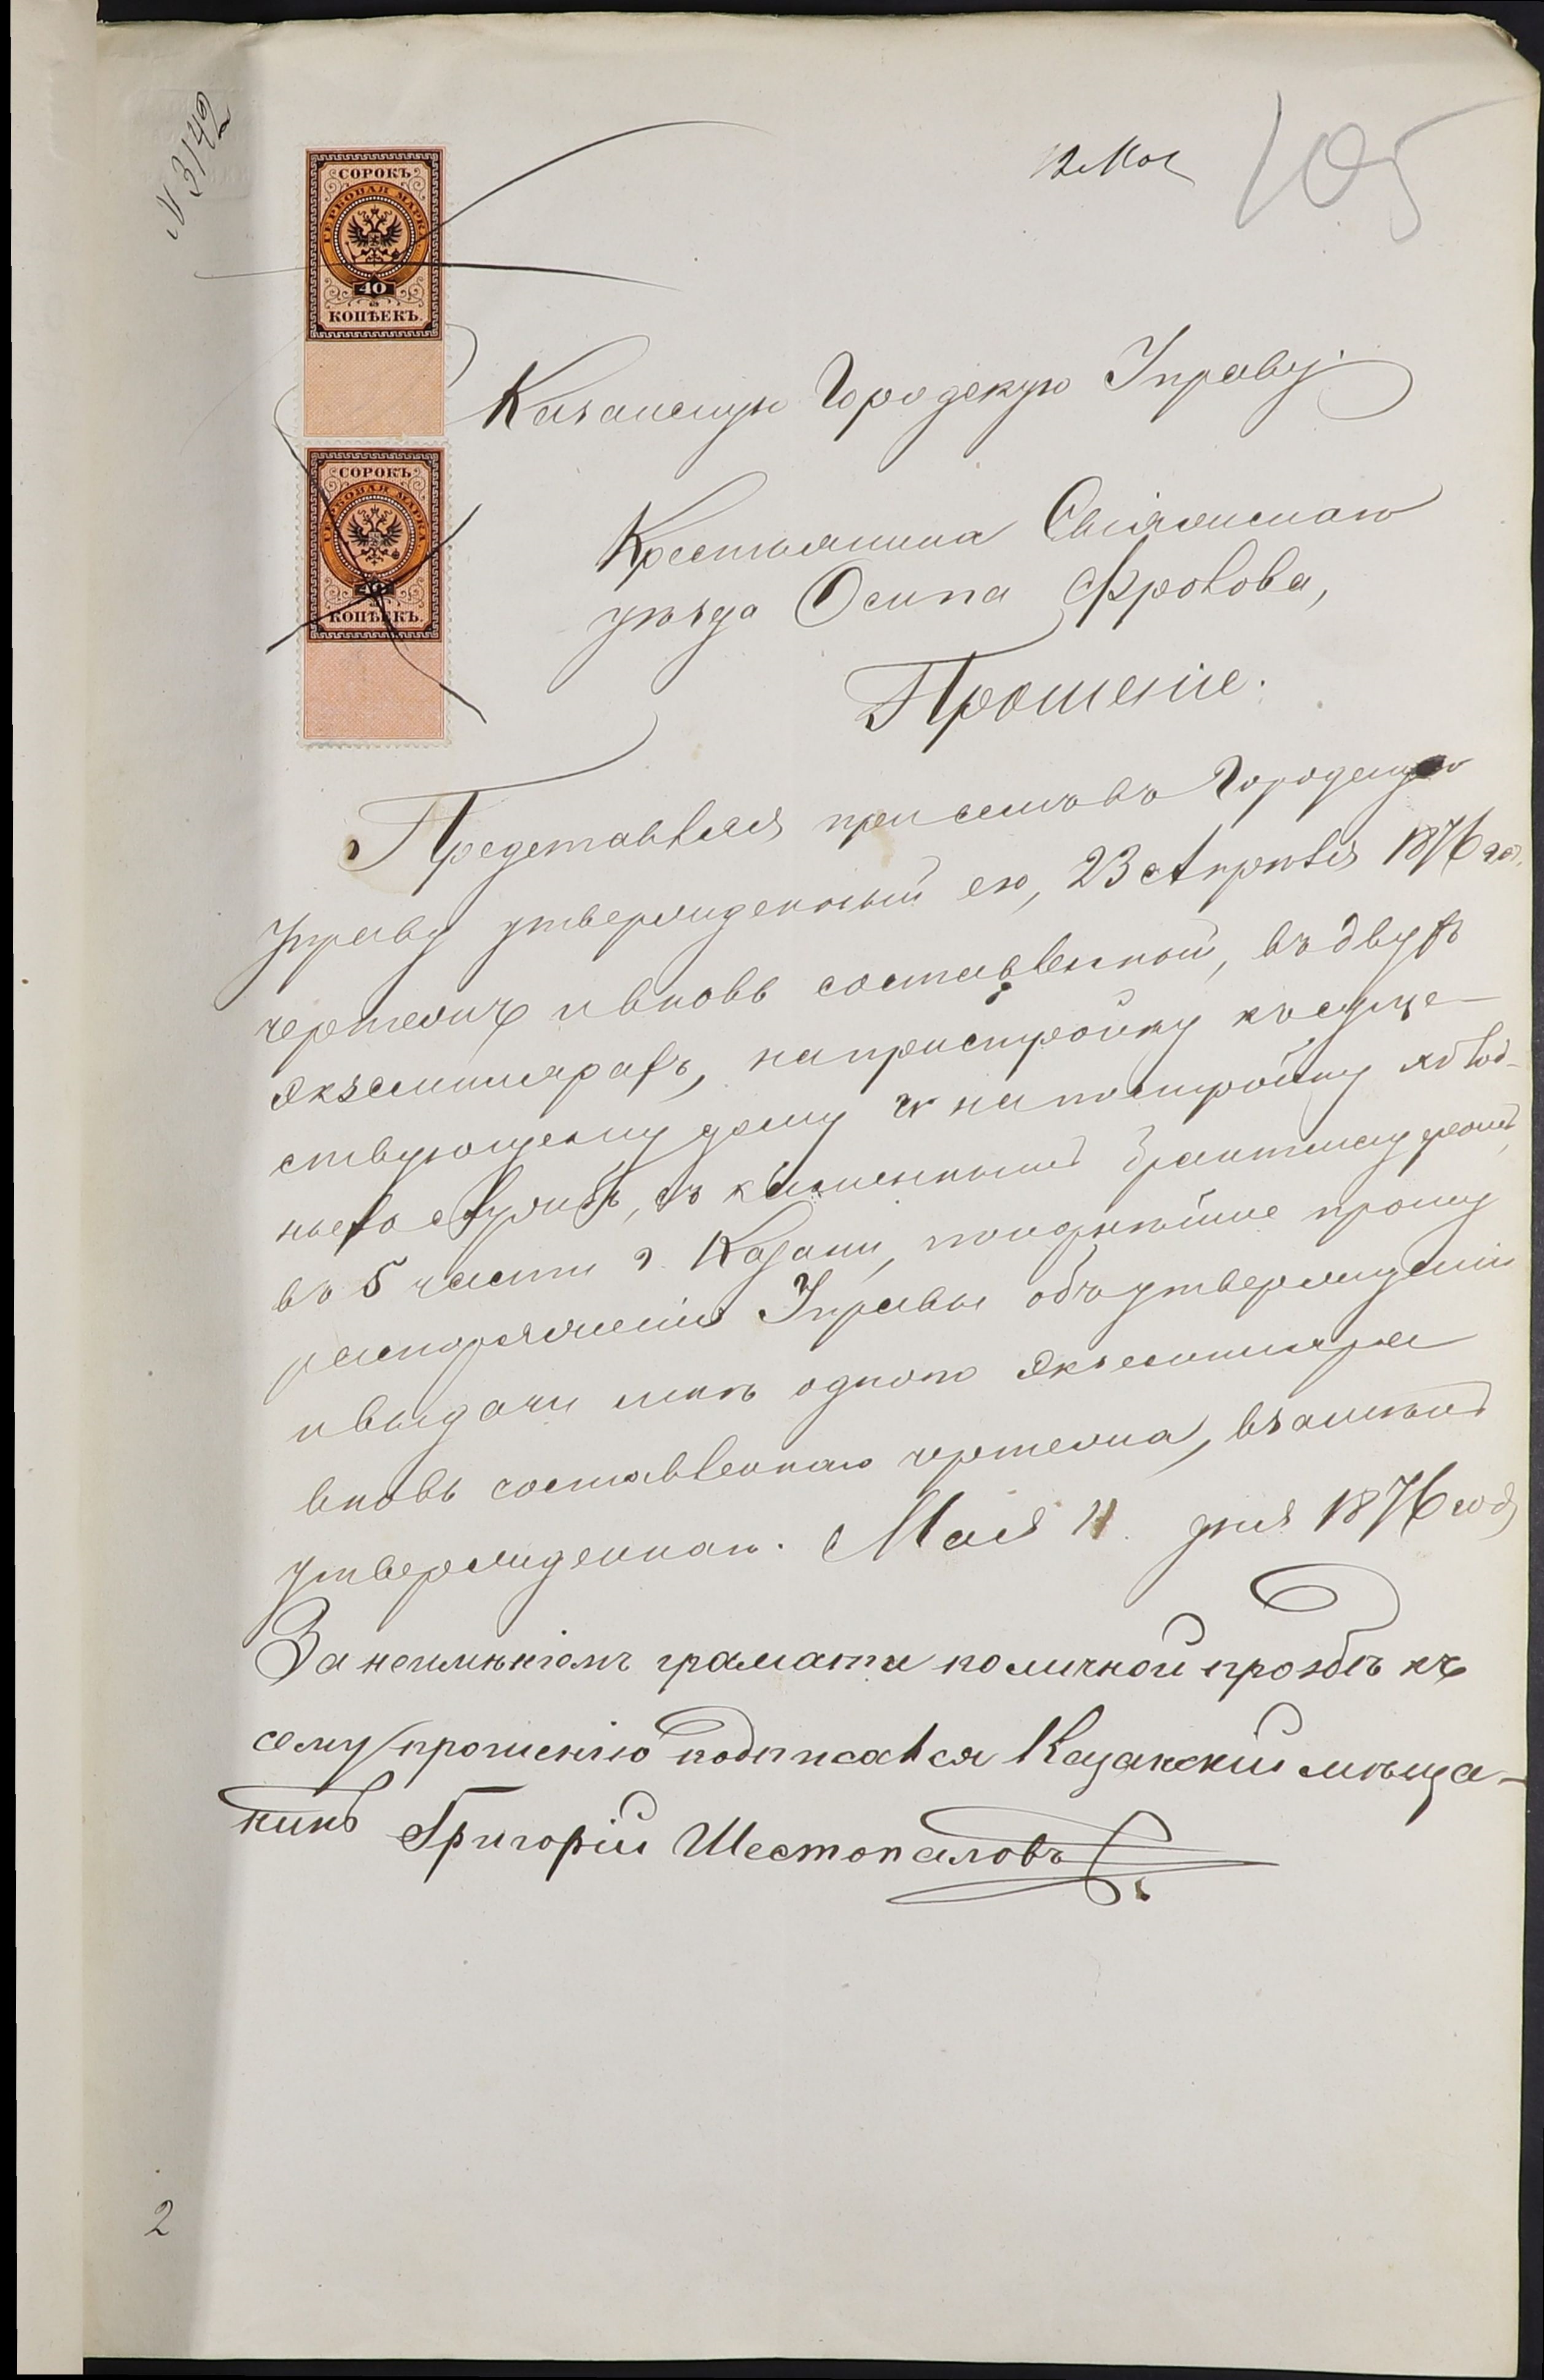 N 3142
12 Мая
105
СОРОКЪ
ГЕРБОВАЯ МАРКА
40
КОПѢЕКЪ.
СОРОКЪ
ГЕРБОВАЯ МАРКА
40
КОПѢЕКЪ.
Казанскую Городскую Управу.
Крестьянина Свіяжскаго
уѣзда Осипа Фролова,
Прошеніе.
Представляя при семъ въ Городскую
Управу утвержденный ею, 23 Апрѣля 1876 го.
чертежъ и вновь составленной, въ двухъ
экземплярахъ, на пристройку къ суще-
ствующему дому и на постройку холод-
ныхъ службъ, съ каменнымъ брантмауеромъ,
въ 5 части г. Казани, покорнѣйше прошу
распоряженія Управы объ утвержденіи
и выдачи мнѣ одного экземпляра
вновь составленнаго чертежа, взамѣнъ
утвержденнаго. Мая 11 дня 1876 года
За неимѣніемъ грамати по личной прозбѣ къ
сему прошенію подписался Казанскій мѣща-
нинъ Григорій Шестопаловъ
2